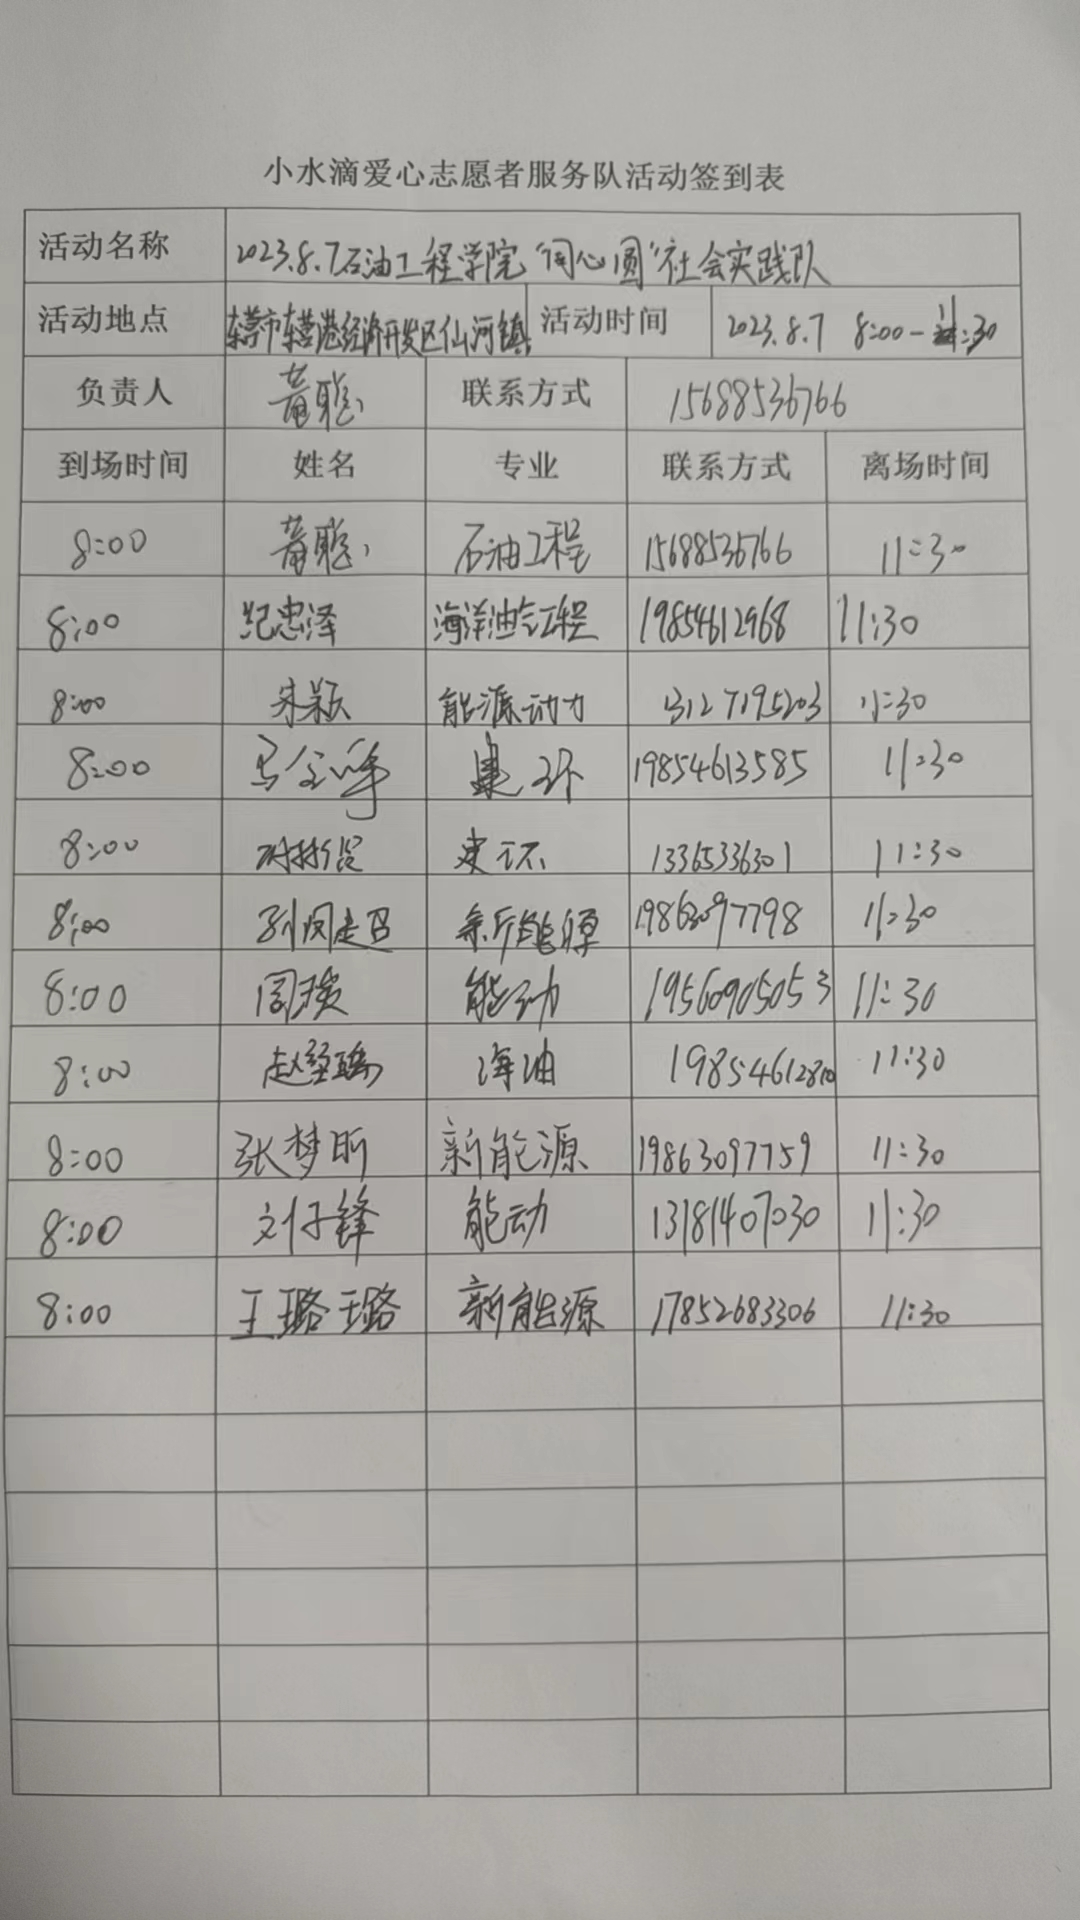 小水滴爱心志愿者服务队活动签到表
活动名称 2023.8.7石油工程学院“同心圆”社会实践队
活动地点 东营市东营港经济开发区仙河镇 活动时间 2023.8.7 8:00-11:30
负责人 黄聪 联系方式 15688536766
到场时间 姓名 专业 联系方式 离场时间
8:00 黄聪 石油工程 15688536766 11:30
8:00 纪忠泽 海洋油气工程 19854612968 11:30
8:00 宋颖 能源动力 13127195203 11:30
8:00 建环 19854613585 11:30
8:00 建环 13365336301 11:30
8:00 新能源 19863097798 11:30
8:00 周琰 能动 19560905053 11:30
8:00 海油 19854612810 11:30
8:00 张梦昕 新能源 19863097759 11:30
8:00 刘子锋 能动 13181407030 11:30
8:00 王璐璐 新能源 17852683306 11:30